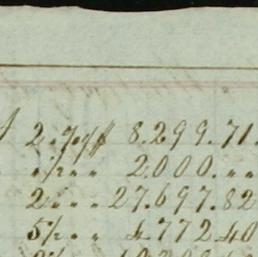 2 . % $ 8.299.71.
" ½ " " 2.000. " "
2 " " " 27.697.82
5½ " " 4.772.40